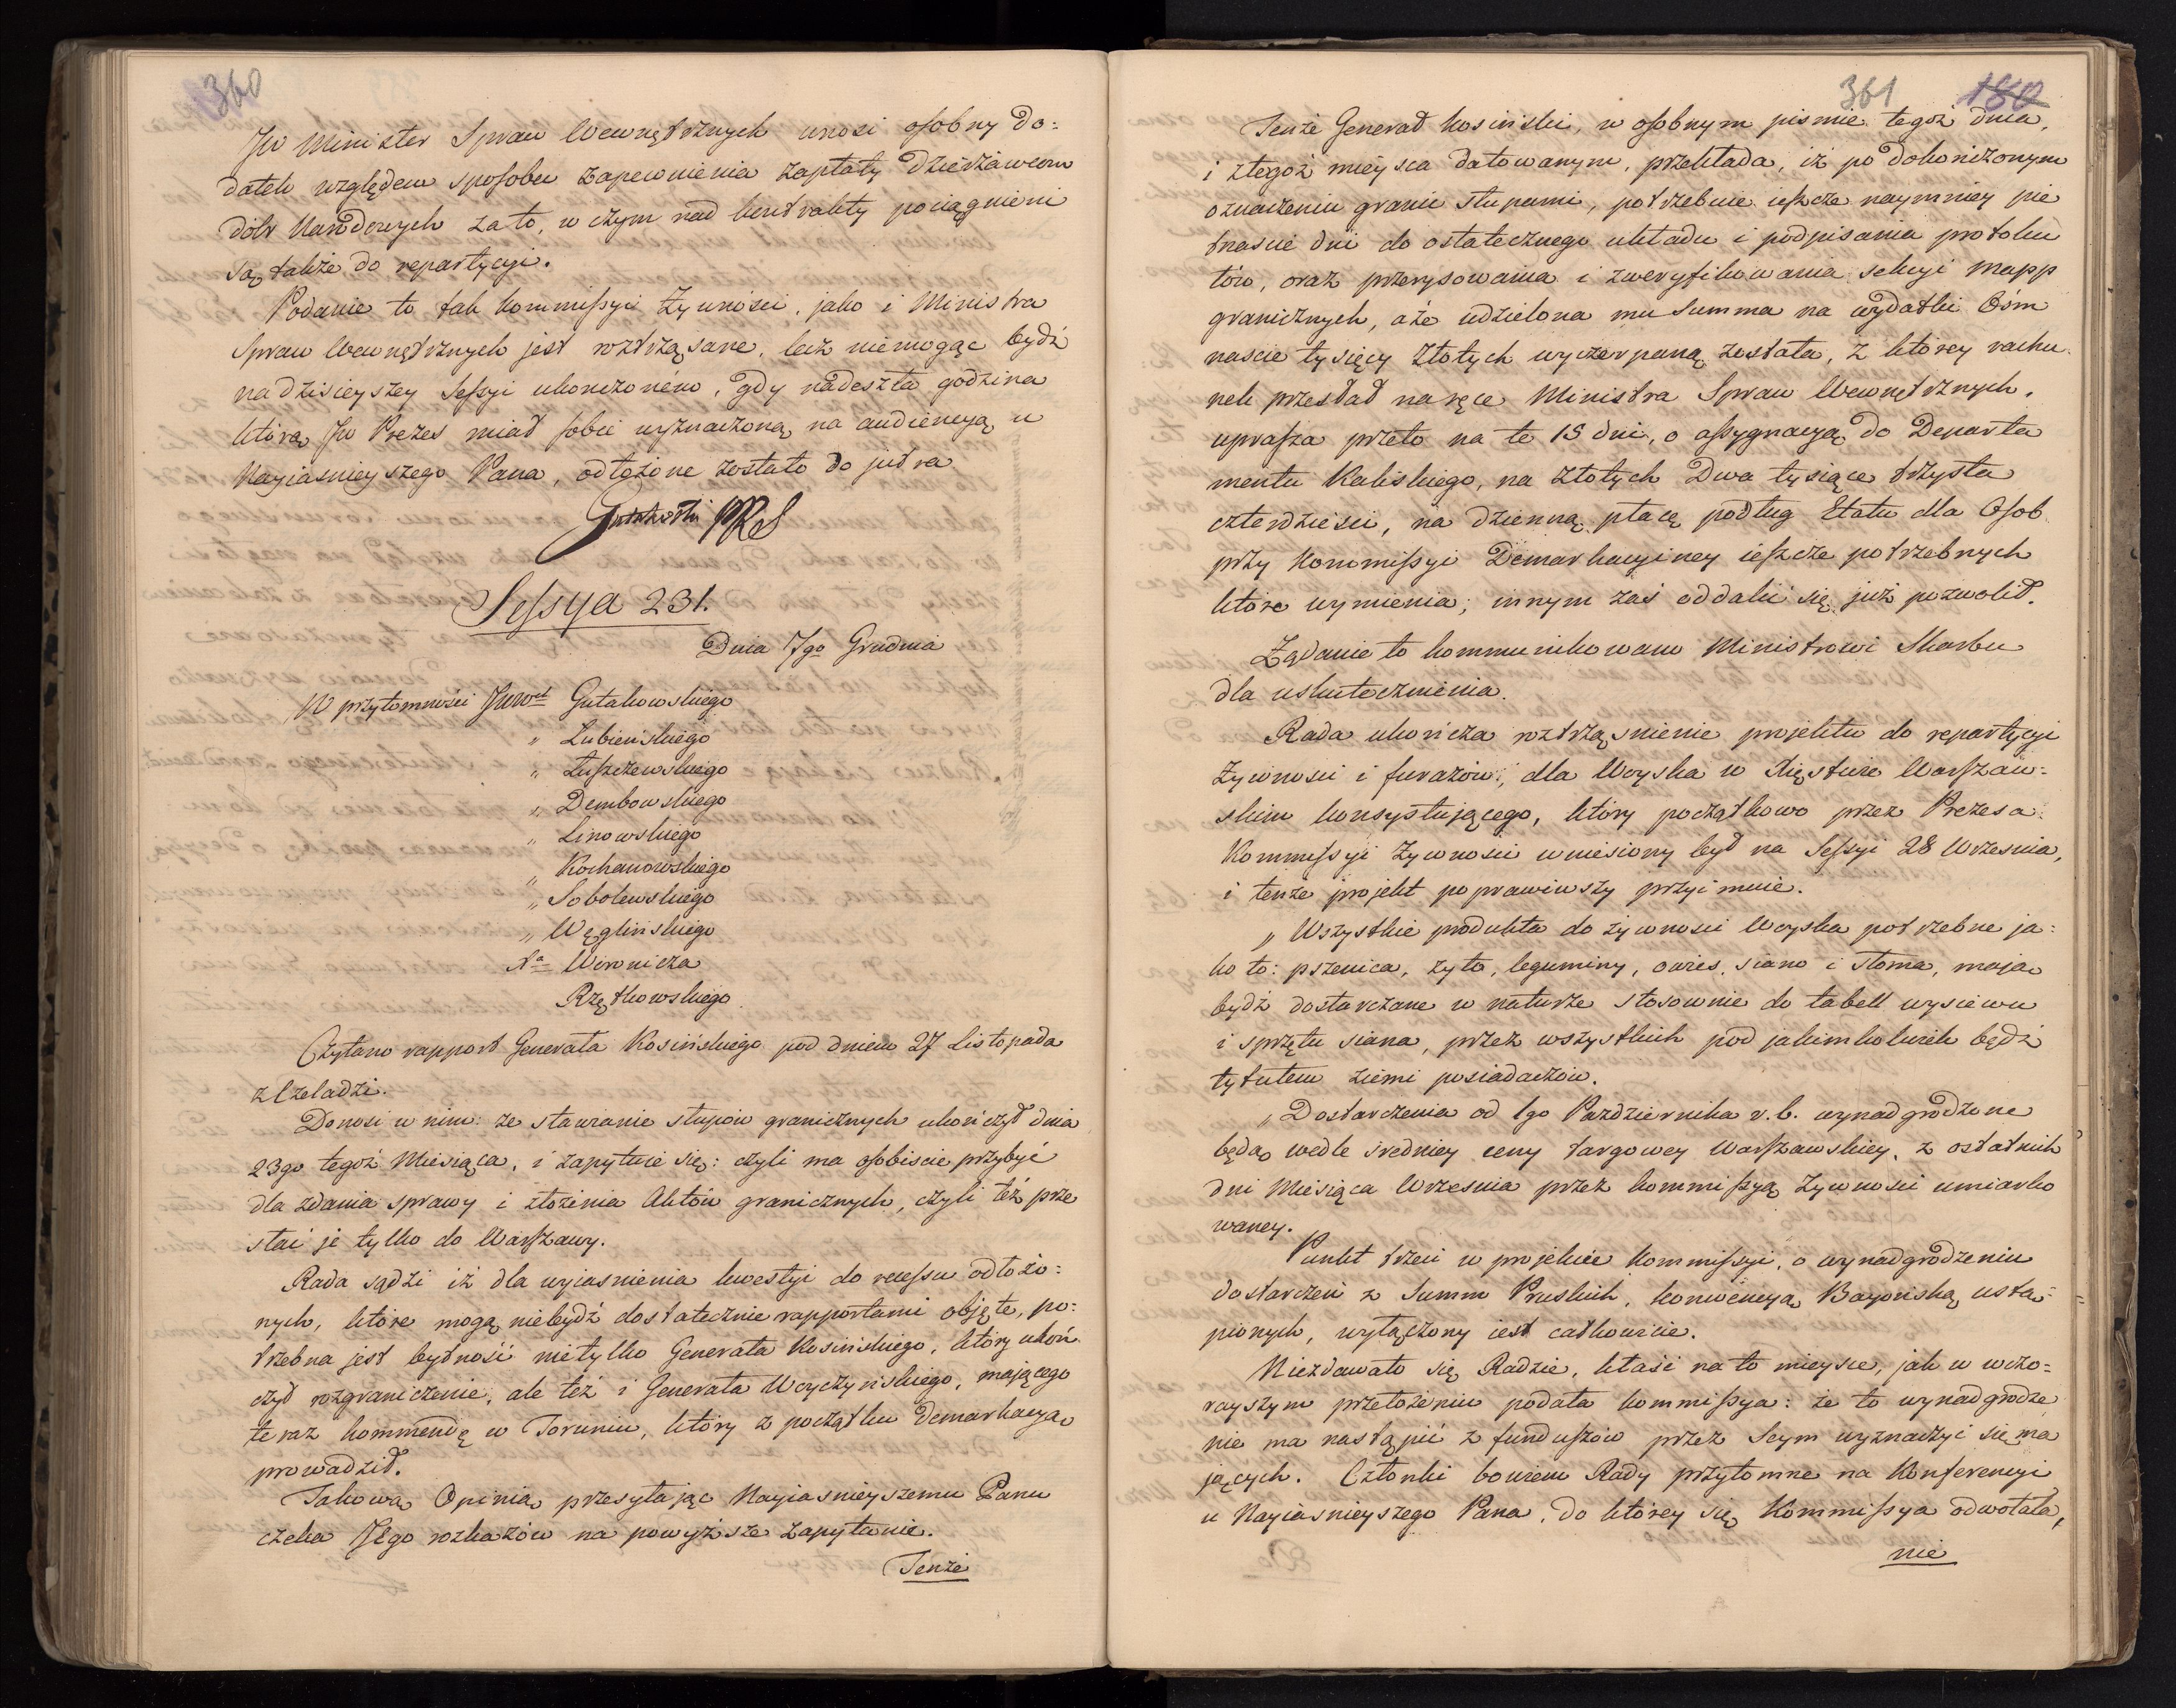 360
JW Minister Spraw Wewnętrznych wnosi osobny do=
datek względem sposobu zapewnienia zapłaty dzierżawcom
dóbr Narodowych za to, w czym nad kontrakty pociągnieni
są także do repartycyi.
Podanie to tak Kommissyi Żywności, jako i Ministra
Spraw Wewnętrznych jest roztrząsane, lecz niemogąc bydź
na dzisieyszey Sessyi ukończoném, gdy nadeszła godzina
którą JW Prezes miał sobie wyznaczoną na audiencyą u
Nayiaśnieyszego Pana, odłożone zostało do jutra
Gutakowski PRS
Sessya 231.
Dnia 7go Grudnia
W przytomności JWWch Gutakowskiego
" Łubieńskiego
" Łuszczewskiego
" Dembowskiego
" Linowskiego
" Kochanowskiego
" Sobolewskiego
" Węglińskiego
Xa Woronicza
Rzętkowskiego
Czytano rapport Generała Kosińskiego pod dniem 27 Listopada
z Czeladzi.
Donosi w nim: że stawianie słupów granicznych ukończył dnia
23go tegoż Miesiąca, i zapytuie się: czyli ma osobiście przybyć
dla zdania sprawy i złożenia Aktów granicznych, czyli też prze
słać je tylko do Warszawy.
Rada sądzi iż dla wyiaśnienia kwestyi do recessu odłożo=
nych, które mogą niebydź dostatecznie rapportami objęte, po=
trzebna jest bytność nietylko Generała Kosińskiego, który ukoń
czył rozgraniczenie, ale też i Generała Woyczyńskiego, mającego
teraz kommendę w Toruniu, który z początku Demarkacyą
prowadził.
Takową Opinią przesyłając Nayiaśnieyszemu Panu
czeka JEgo rozkazów na powyższe zapytanie.
Tenże
361 180
Tenże Generał Kosiński, w osobnym piśmie tegoż dnia,
i z tegoż mieysca datowanym, przekłada, iż po dokończonym
oznaczeniu granic słupami, potrzebuie ieszcze naymniey pię
tnaście dni do ostatecznego układu i podpisania protoku
łów, oraz przerysowania i zweryfikowania sekcyi mapp
granicznych, a że udzielona mu summa na wydatki Ośm
naście tysięcy złotych wyczerpaną została, z którey rachu
nek przesłał na ręce Ministra Spraw Wewnętrznych.
uprasza przeto na te 15 dni, o assygnacyą do Departa
mentu Kaliskiego, na złotych Dwa tysiące trzysta
czterdzieści, na dzienną płacę podług Etatu dla Osob
przy Kommissyi Demarkacyiney ieszcze potrzebnych
które wymienia; innym zaś oddalić się już pozwolił.
Żądanie to kommunikowano Ministrowi Skarbu
dla uskutecznienia.
Rada ukończa roztrząśnienie projektu do repartycyi
żywności i furażów, dla Woyska w Xięstwie Warszaw=
skim konsystującego, który początkowo przez Prezesa
Kommissyi Żywności wniesiony był na Sessyi 28 Września,
i tenże projekt poprawiwszy przyimuie.
" Wszystkie produkta do żywności Woyska potrzebne ja=
ko to: pszenica, żyto, leguminy, owies, siano i słoma, mają
bydź dostarczane w naturze stosownie do tabell wysiewu
i sprzętu siana, przez wszystkich pod jakimkolwiek bądź
tytułem ziemi posiadaczów.
" Dostarczenia od 1go Października r.b. wynadgrodzone
będą wedle średniey ceny targowey Warszawskiey, z ostatnich
dni Miesiąca Września przez Kommissyą Żywności umiarko
waney.
Punkt trzeci w projekcie Kommissyi, o wynadgrodzeniu
dostarczeń z Summ Pruskich, konwencyą Bayońską ustą=
pionych, wyłączony iest całkowicie.
Niezdawało się Radzie, kłaść na to mieysce, jak w wczo=
rayszym przełożeniu podała Kommissya: że to wynadgrodze
nie ma nastąpić z funduszów przez Seym wyznaczyć się ma
jących. Członki bowiem Rady przytomne na Konferencyi
u Nayiaśnieyszego Pana, do którey się Kommissya odwołała,
nie